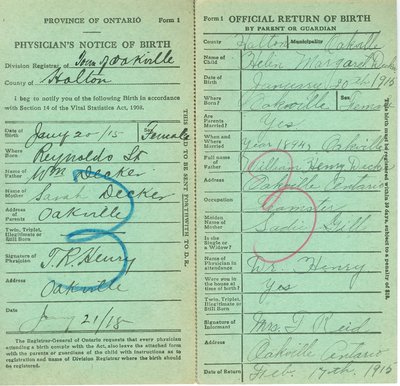 PROVINCE OF ONTARIO Form 1
PHYSICIAN'S NOTICE OF BIRTH
Division Registrar of Town of Oakville
County of Halton
I beg to notify you of the following Birth in accordance
with Section 14 of the Vital Statistics Act, 1908.
Date of Birth Jany 20/15 Female
Where Born Reynolds St
Name of Father Wm Decker
Name of Mother Sarah Decker
Address of Parents Oakville
Twin, Triplet, Illegitimate or Still Born
Signature of Physician T. R. Henry
Address Oakville
Date Jany 21/15
The Registrar-General of Ontario requests that every physician
attending a birth comply with the Act, also leave the attached form
with the parents or guardians of the child with instructions as to
registration and name of Division Registrar where the birth should
be registered.
THIS CARD TO BE SENT FORTHWITH TO D.R.
33
Form 1 OFFICIAL RETURN OF BIRTH
BY PARENT OR GUARDIAN
County Halton Municipality Oakville
Name of Child Helen Margaret Decker
Date of Birth January 20th 1915
Where Born? Oakville Sex Female
Are Parents Married? Yes
When and Where Married Year 1894 Oakville
Full name of Father William Henry Decker
Address Oakville Ontario
Occupation Teamster
Maiden Name of Mother Sarah Gill
Is she Single or a Widow?
Name of Physician in attendance Dr Henry
Were you in the house at time of birth? Yes
Twin, Triplet, Illegitimate or Still Born
Signature of Informant Mrs. T Reid
Address Oakville Ontario
Date of Return Feb. 17th. 1915
33